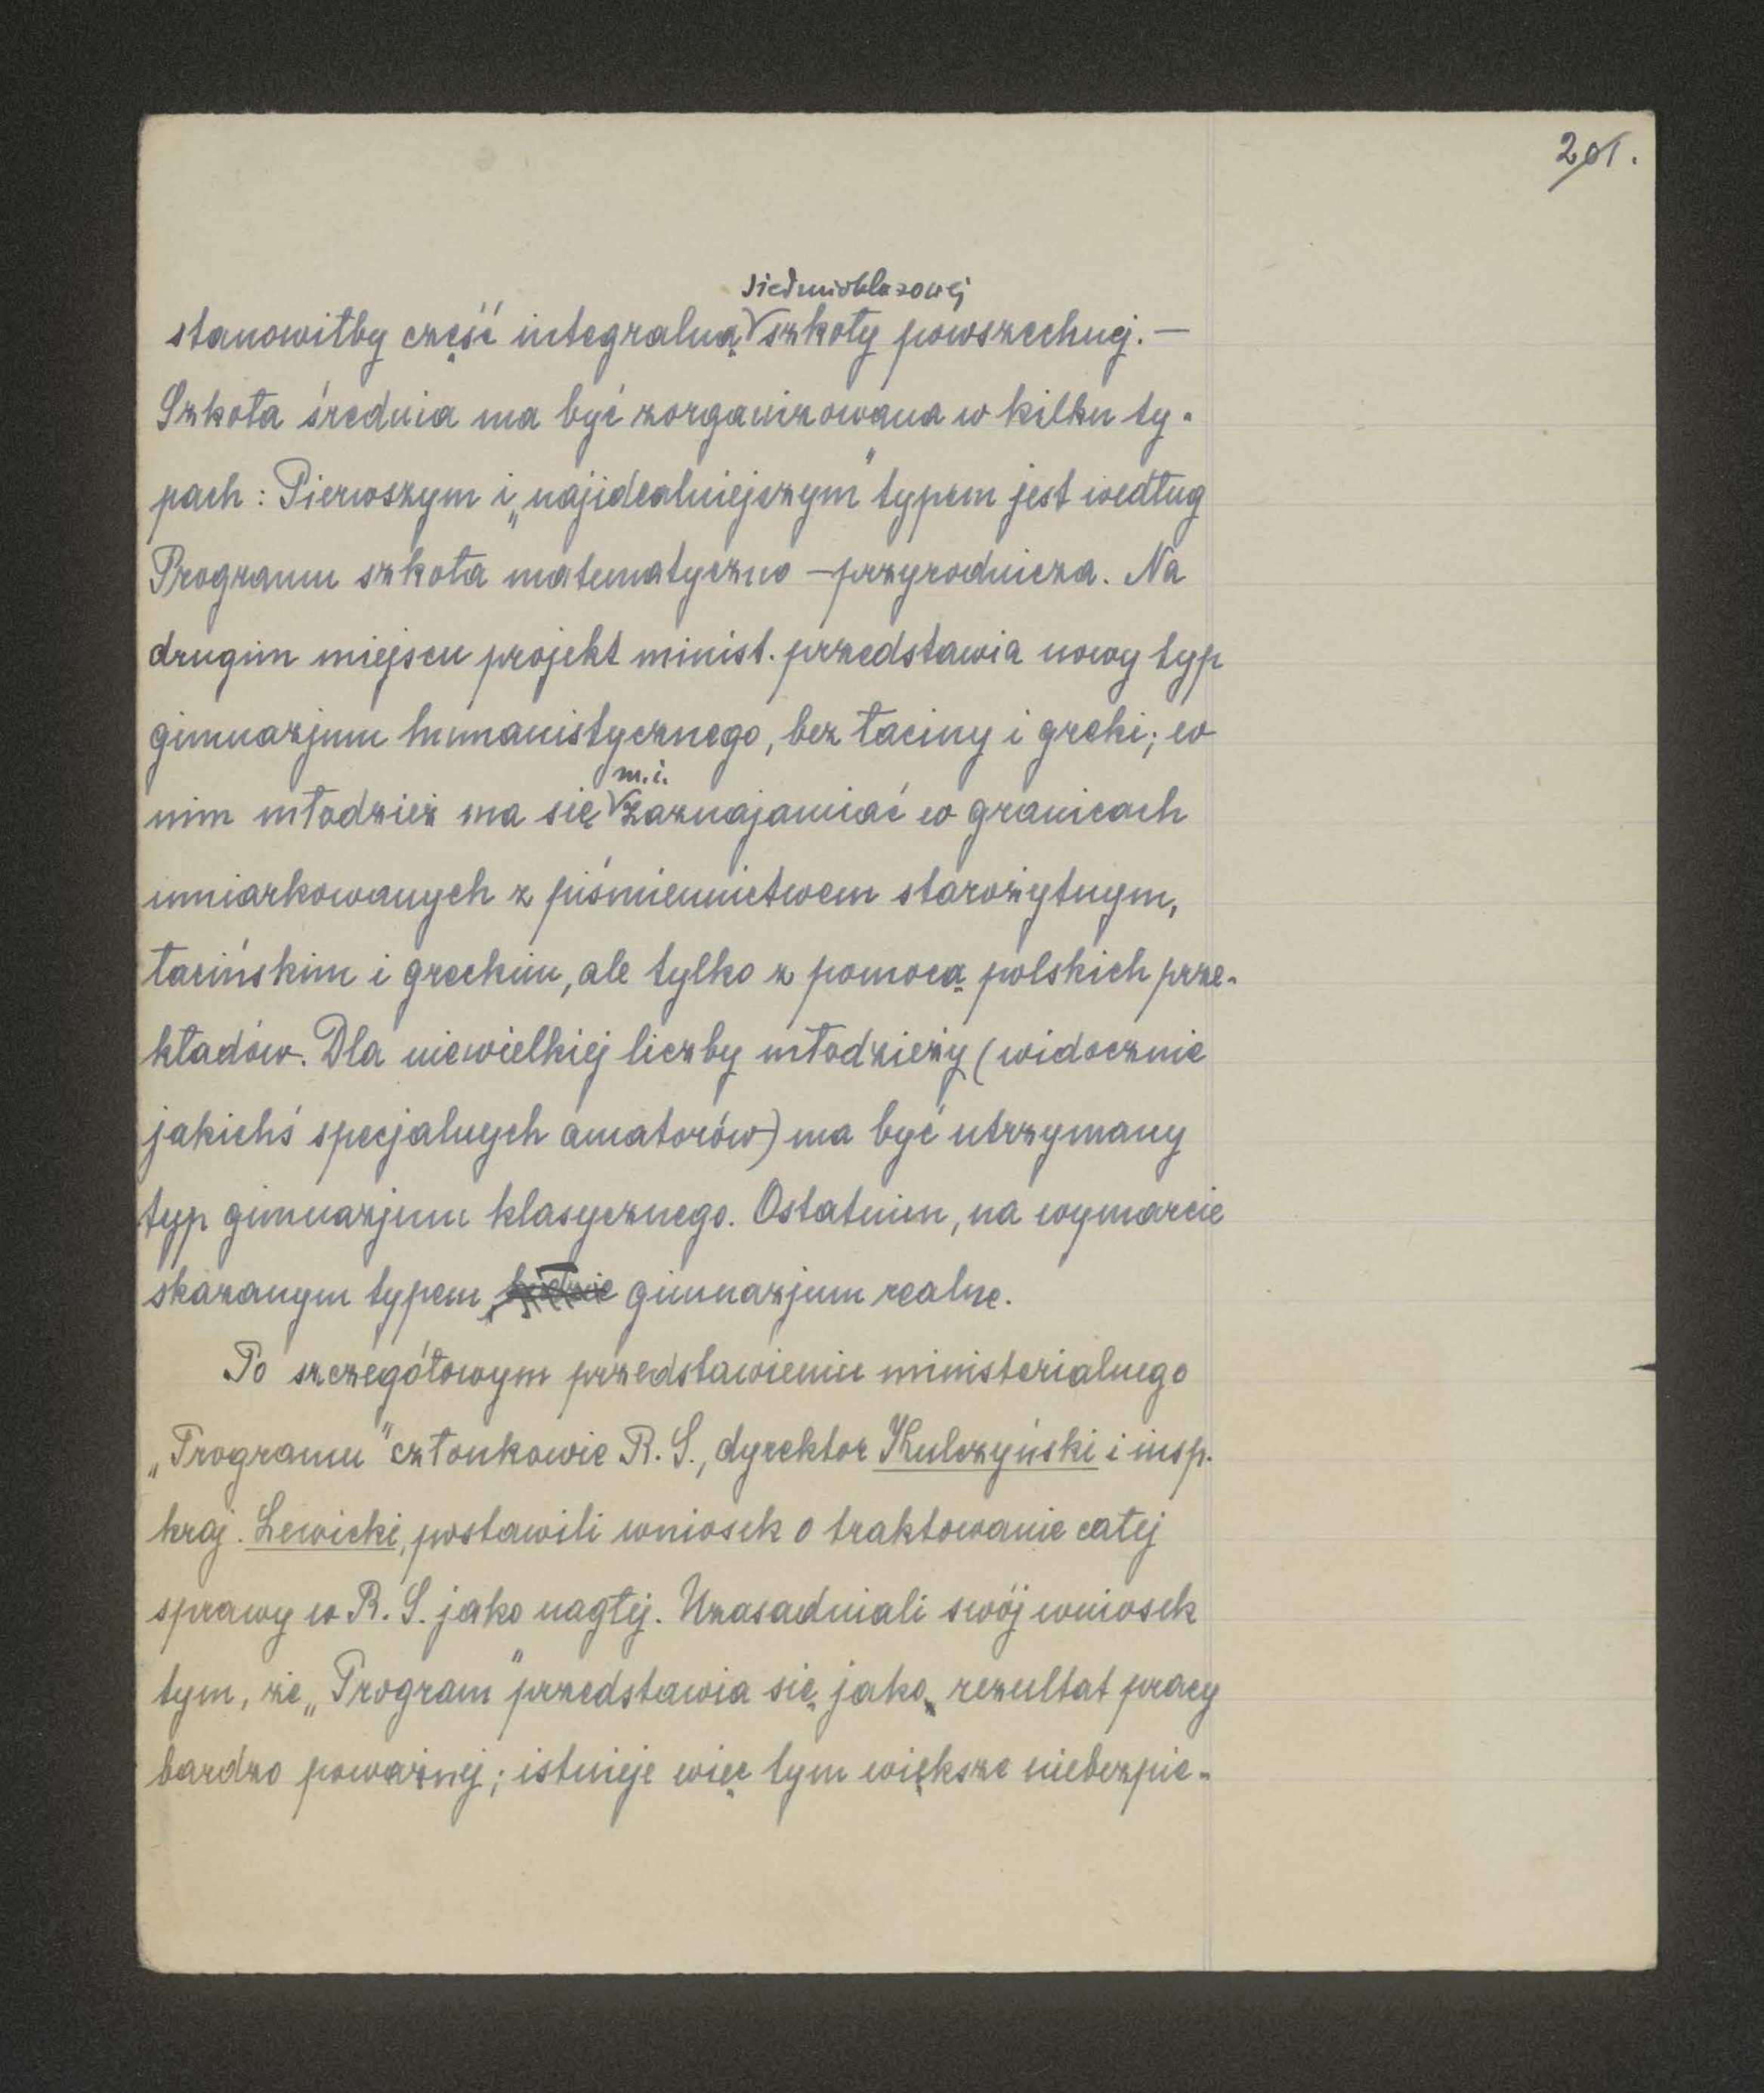 201.
siedmioklasowej
stanowiłby część integralną szkoły powszechnej. —
Szkoła średnia ma być zorganizowana w kilku ty-
pach: Pierwszym i „najidealniejszym" typem jest według
Programu szkoła matematyczno-przyrodnicza. Na
drugim miejscu projekt minist. przedstawia nowy typ
gimnazjum humanistycznego, bez łaciny i greki; w
m.i.
nim młodzież ma się zaznajamiać w granicach
umiarkowanych z piśmiennictwem starożytnym,
łacińskim i greckim, ale tylko z pomocą polskich prze-
kładów. Dla niewielkiej liczby młodzieży (widocznie
jakichś specjalnych amatorów) ma być utrzymany
typ gimnazjum klasycznego. Ostatnim, na wymarcie
skazanym typem, gimnazjum realne.
Po szczegółowym przedstawieniu ministerialnego
„Programu" członkowie R. S., dyrektor Kulczyński i insp.
kraj. Lewicki, postawili wniosek o traktowanie całej
sprawy w R. S. jako nagłej. Uzasadniali swój wniosek
tym, że „Program" przedstawia się jako rezultat pracy
bardzo poważnej; istnieje więc tym większe niebezpie-